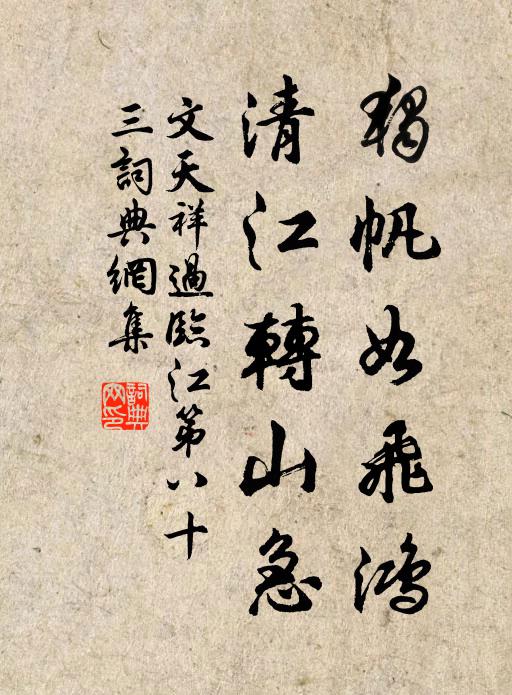 獨帆如飛鴻
清江轉山急
文天祥過臨江第八十
三詞典網集
詞典
网印